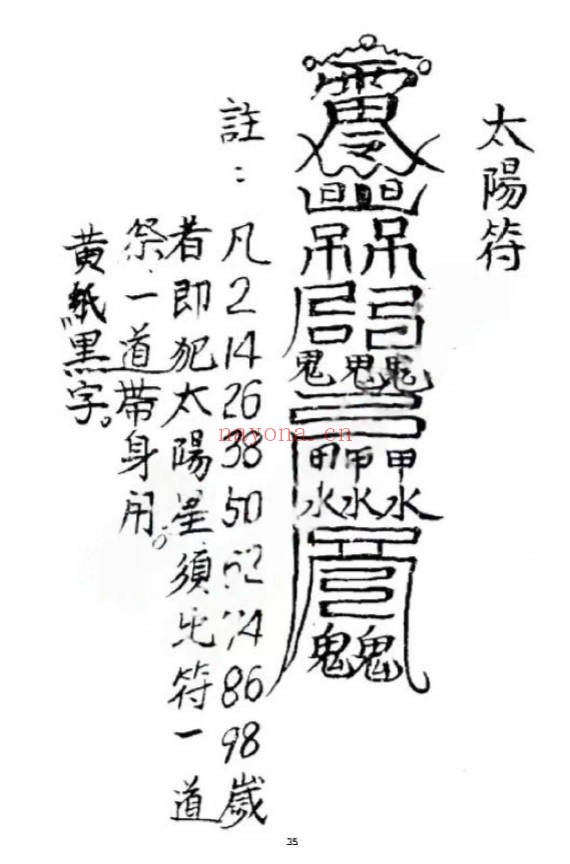 太陽符
雷令
日日
吊吊
鬼鬼鬼
甲甲甲
水水水
鬼鬼
註：凡2 14 26 38 50 62 74 86 98歲
者即犯太陽星須此符一道
祭一道帶身用。
黄紙黑字。
nayona.cn
35